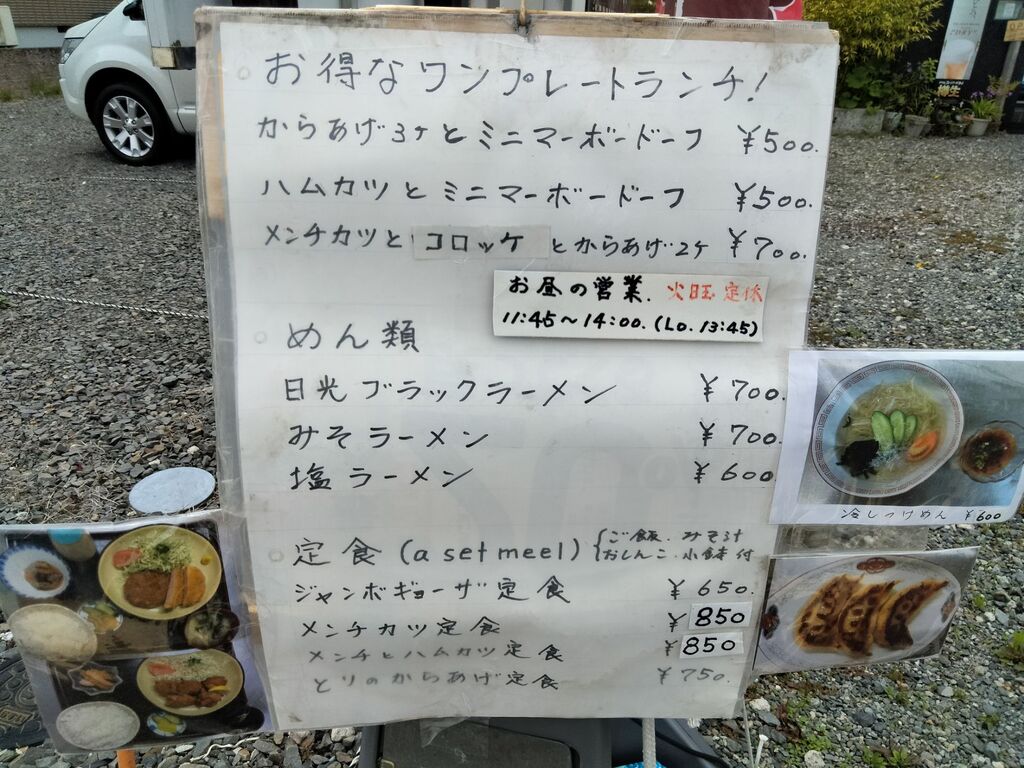 お得なワンプレートランチ!
からあげ3ヶとミニマーボードーフ ¥500.
ハムカツとミニマーボードーフ ¥500.
メンチカツとコロッケとからあげ2ヶ ¥700.
お昼の営業. 火曜定休
11:45～14:00.(Lo.13:45)
めん類
日光ブラックラーメン ¥700.
みそラーメン ¥700.
塩ラーメン ¥600.
冷しつけめん ¥600
定食(a set meel) {ご飯.みそ汁
おしんこ.小鉢付
ジャンボギョーザ定食 ¥650.
メンチカツ定食 ¥850
メンチとハムカツ定食 ¥850
とりのからあげ定食 ¥750.